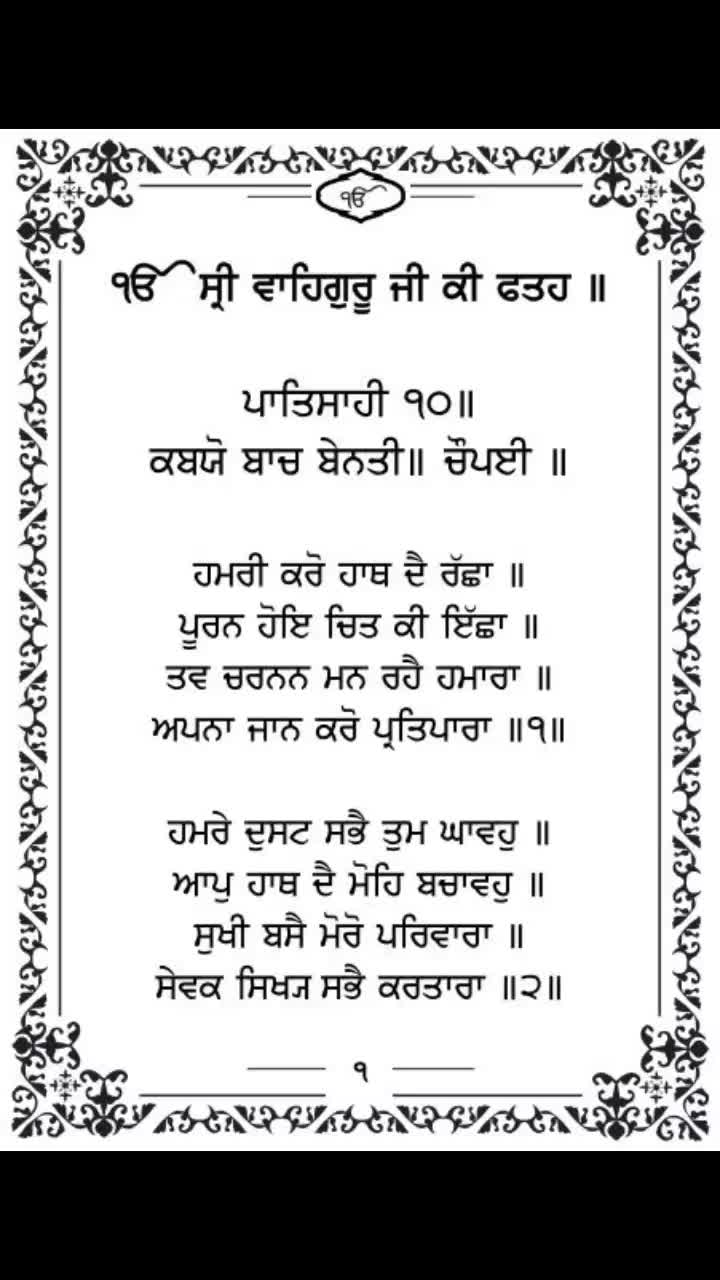 ੴ
ੴ ਸ੍ਰੀ ਵਾਹਿਗੁਰੂ ਜੀ ਕੀ ਫਤਹ ॥
ਪਾਤਿਸਾਹੀ ੧੦॥
ਕਬਯੋ ਬਾਚ ਬੇਨਤੀ॥ ਚੌਪਈ ॥
ਹਮਰੀ ਕਰੋ ਹਾਥ ਦੈ ਰੱਛਾ ॥
ਪੂਰਨ ਹੋਇ ਚਿਤ ਕੀ ਇੱਛਾ ॥
ਤਵ ਚਰਨਨ ਮਨ ਰਹੈ ਹਮਾਰਾ ॥
ਅਪਨਾ ਜਾਨ ਕਰੋ ਪ੍ਰਤਿਪਾਰਾ ॥੧॥
ਹਮਰੇ ਦੁਸਟ ਸਭੈ ਤੁਮ ਘਾਵਹੁ ॥
ਆਪੁ ਹਾਥ ਦੈ ਮੋਹਿ ਬਚਾਵਹੁ ॥
ਸੁਖੀ ਬਸੈ ਮੋਰੋ ਪਰਿਵਾਰਾ ॥
ਸੇਵਕ ਸਿਖ੍ਯ ਸਭੈ ਕਰਤਾਰਾ ॥੨॥
੧